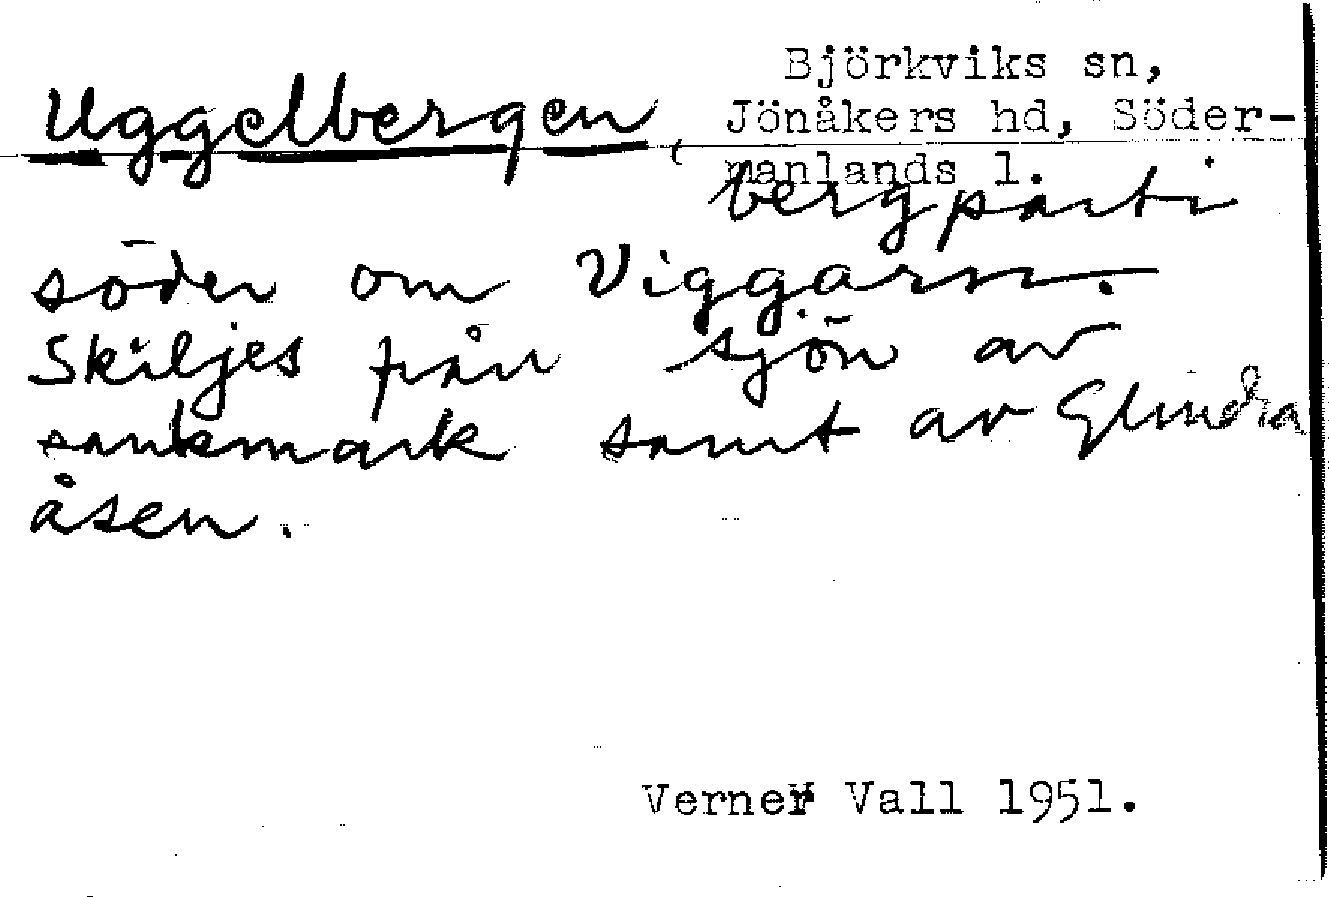 Björkviks sn,
Uggelbergen, Jönåkers hd, Söder-
manlands l.
bergparti
söder om Viggarn.
Skiljes från sjön av
sankmark samt av Glindra
åsen.
Verner Vall 1951.